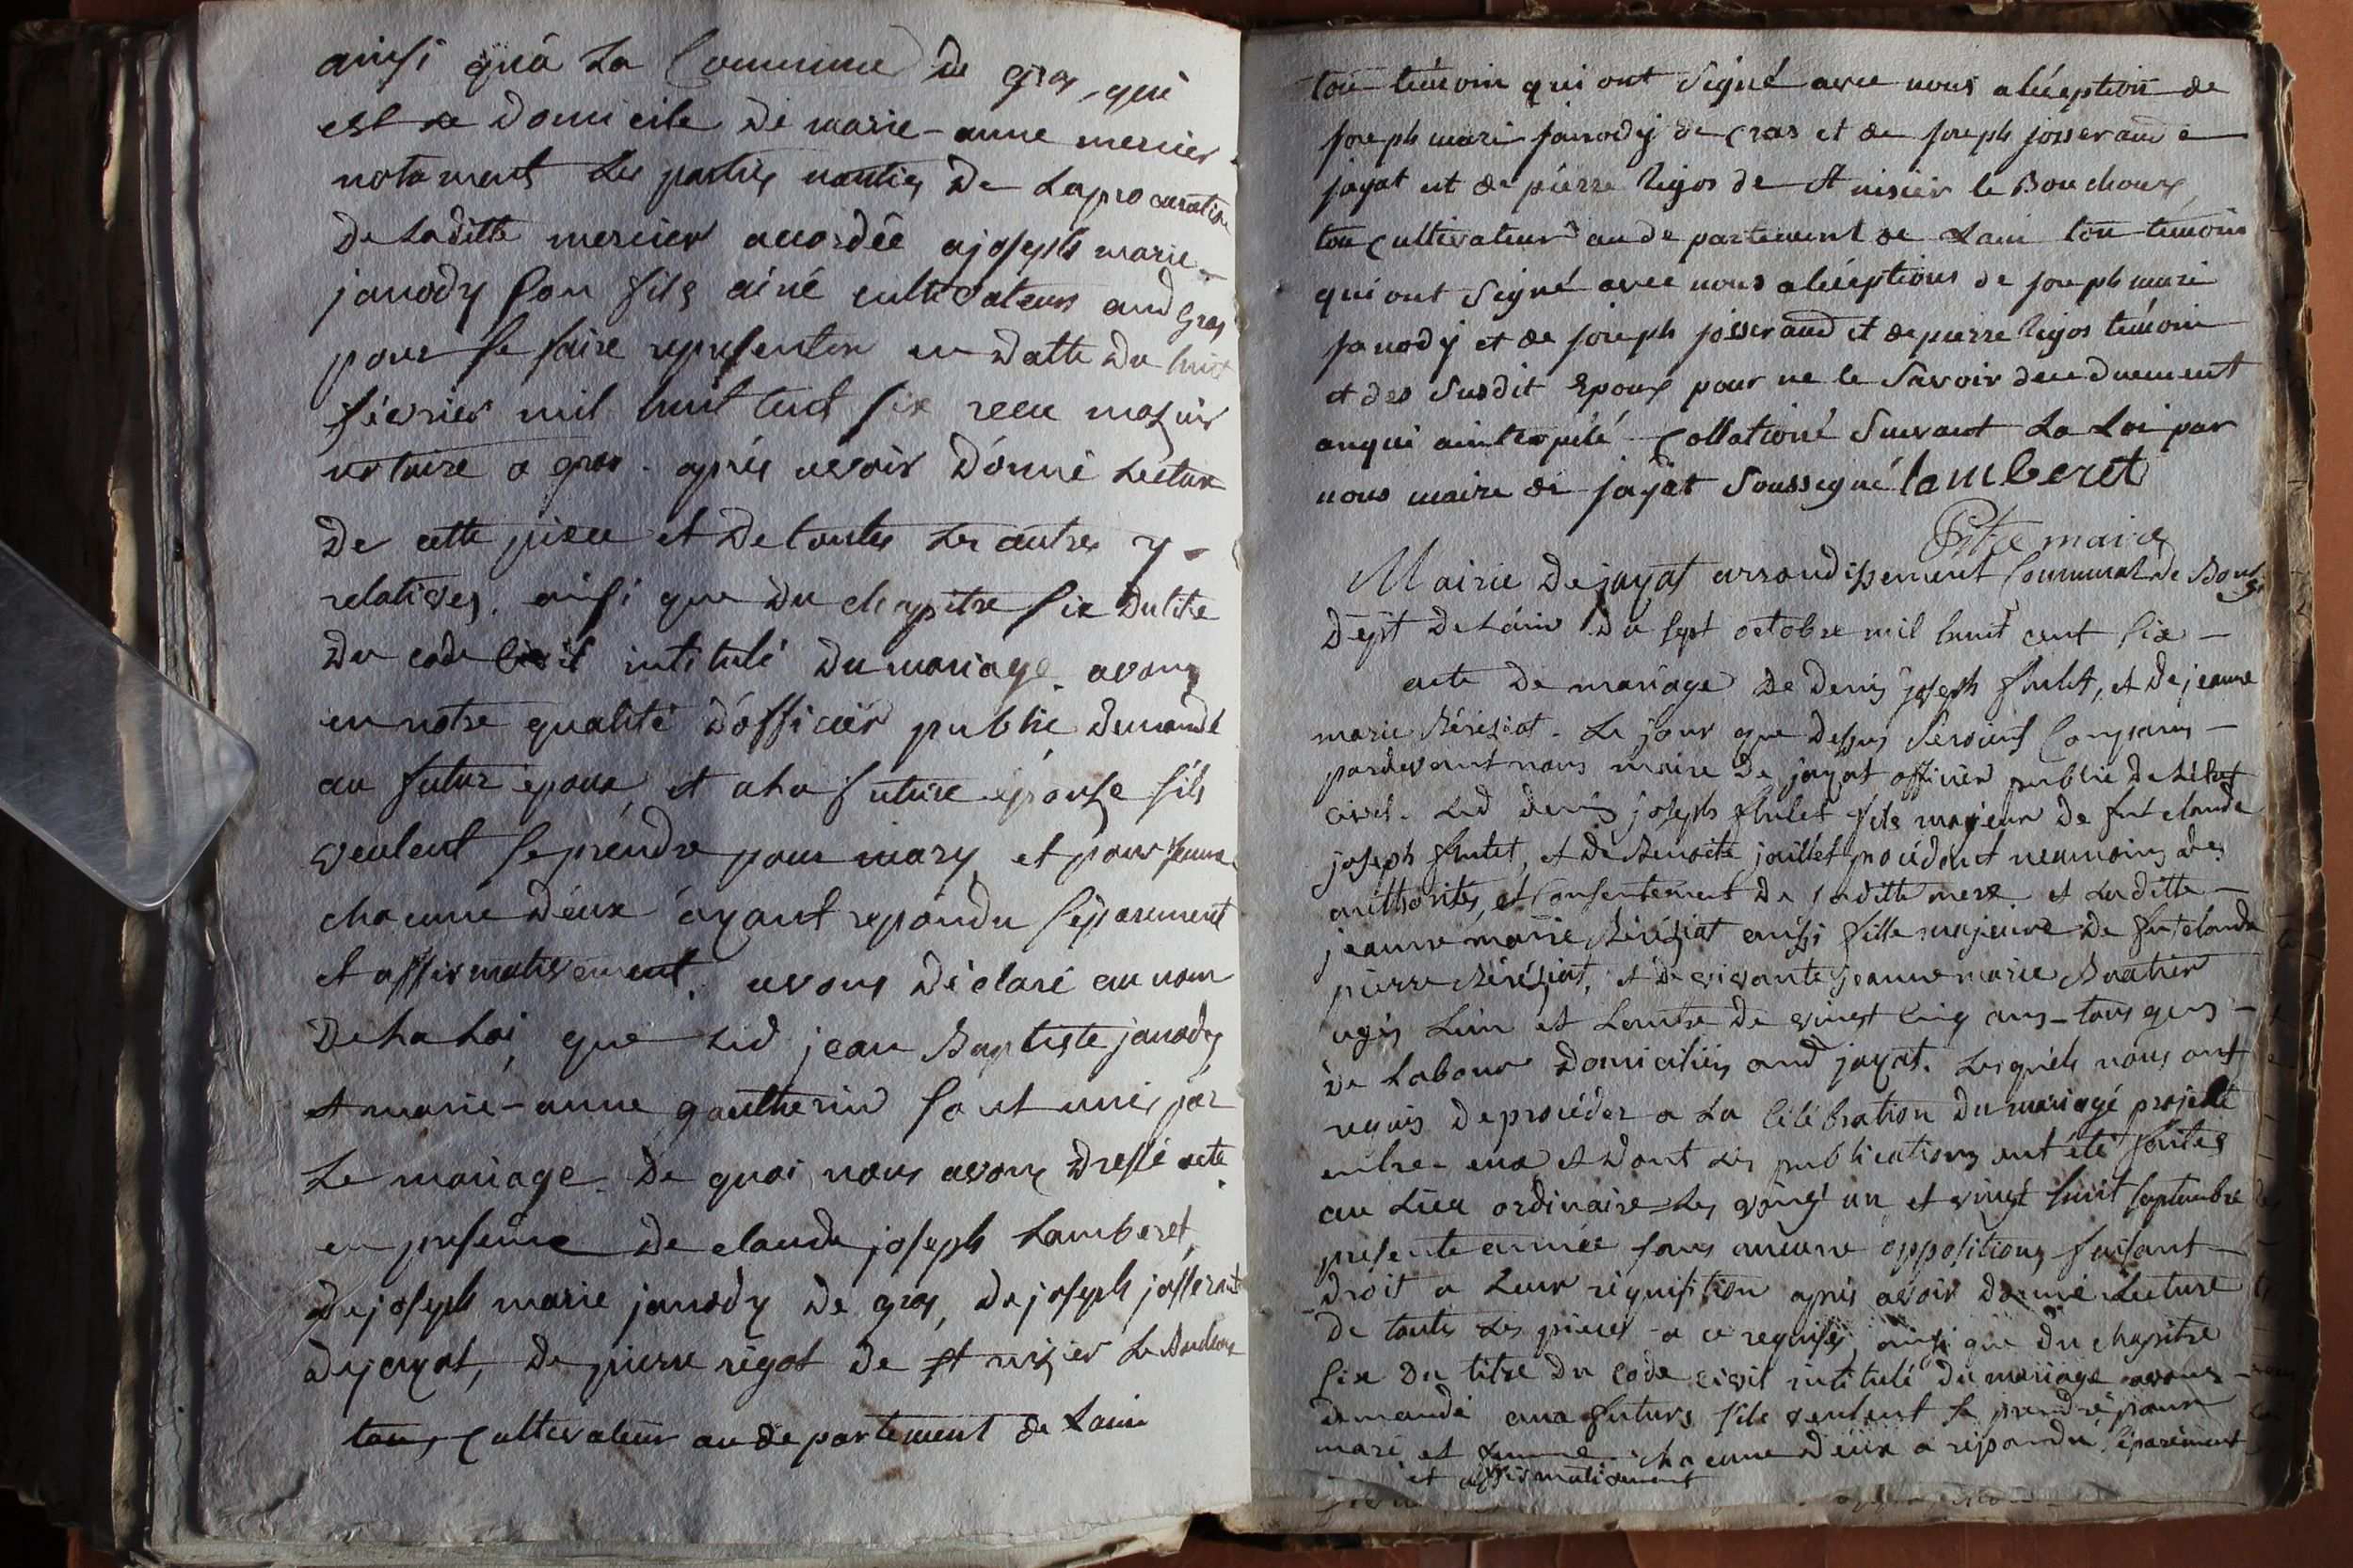 ainsi qu'à la Commune de gras, qui
est le domicile de marie-anne mercier
notament les parties nanties de la procuration
de laditte mercier accordée a joseph marie
janody son fils ainé cultivateur aud gras
pour se faire representer en datte du huit
février mil huit cent six recu mazuir
notaire a gras. après avoir donné lecture
de cette piece et de toutes les autres y
relatives. ainsi que du chapitre six du titre
du code civil intitulé du mariage. avons
en notre qualité d'officier public demandé
au futur epoux et a la future épouse s'ils
veulent se prendre pour mary et pour femme
chacune d'eux ayant repondu séparement
et affirmativement. avons déclaré au nom
de la loi que led jean Baptiste janody
et marie-anne gautherin sont unis par
le mariage. de quoi nous avons dressé acte
en presence de claude joseph Lamberet,
de joseph marie janody de gras, de joseph josserand
de jayat, de pierre rigot de st nizier le Bouchoux
tous cultivateur au departement de Lain
tou témoin qui ont Signé avec nous aléception de
joseph mari janody de Cras et de joseph josserand
jayat et de pierre Rigos de st nisier le Bouchoux
tou Cultivateur au departement de Lain tou témoin
qui ont Signé avec nous aléceptions de joseph mari
janody et de joseph josserand et de pierre Rigos témoin
et des Susdit Epoux pour ne le Savoir de ce duement
enqui ainterpélé Collationé Suivant La Loi par
nous maire de jayat Soussigné lamberet
maire
Mairie de jayat arrondissement Communal de Bourg
dept de Lain du sept octobre mil huit cent six
acte de mariage de denis joseph fulet, et de jeanne
marie Béréziat. Le jour que dessus seroient Comparus
pardevant nous maire de jayat officier public de Létat
civil. Led denis joseph fulet fils majeur de fut claude
joseph fulet, et de Benoite jaillet procédant neamoins des
authorités, et Consentement de laditte mere et Laditte
jeanne marie Béréziat aussi fille majeure de fut claude
pierre Béréziat, et de vivante jeanne marie Buatier
agés Lun et Lautre de vingt cinq ans tous gens
de Labour domiciliés aud jayat. Lesquels nous ont
requis de procéder a La Célébration du mariagé projeté
entre eux et dont les publications ont été faites
au Lieu ordinaire les vingt un et vingt huit septembre
presente année sans aucune oppositions faisant
droit a Leur réquisition après avoir donné Lecture
de toutes les pieces a ce requises, ainsi que du chapitre
six du titre du code civil intitulé du mariage avons
demandé aux futurs s'ils veulent se prendre pour
mari et femme chacune d'eux a répondu séparément
et affirmativement